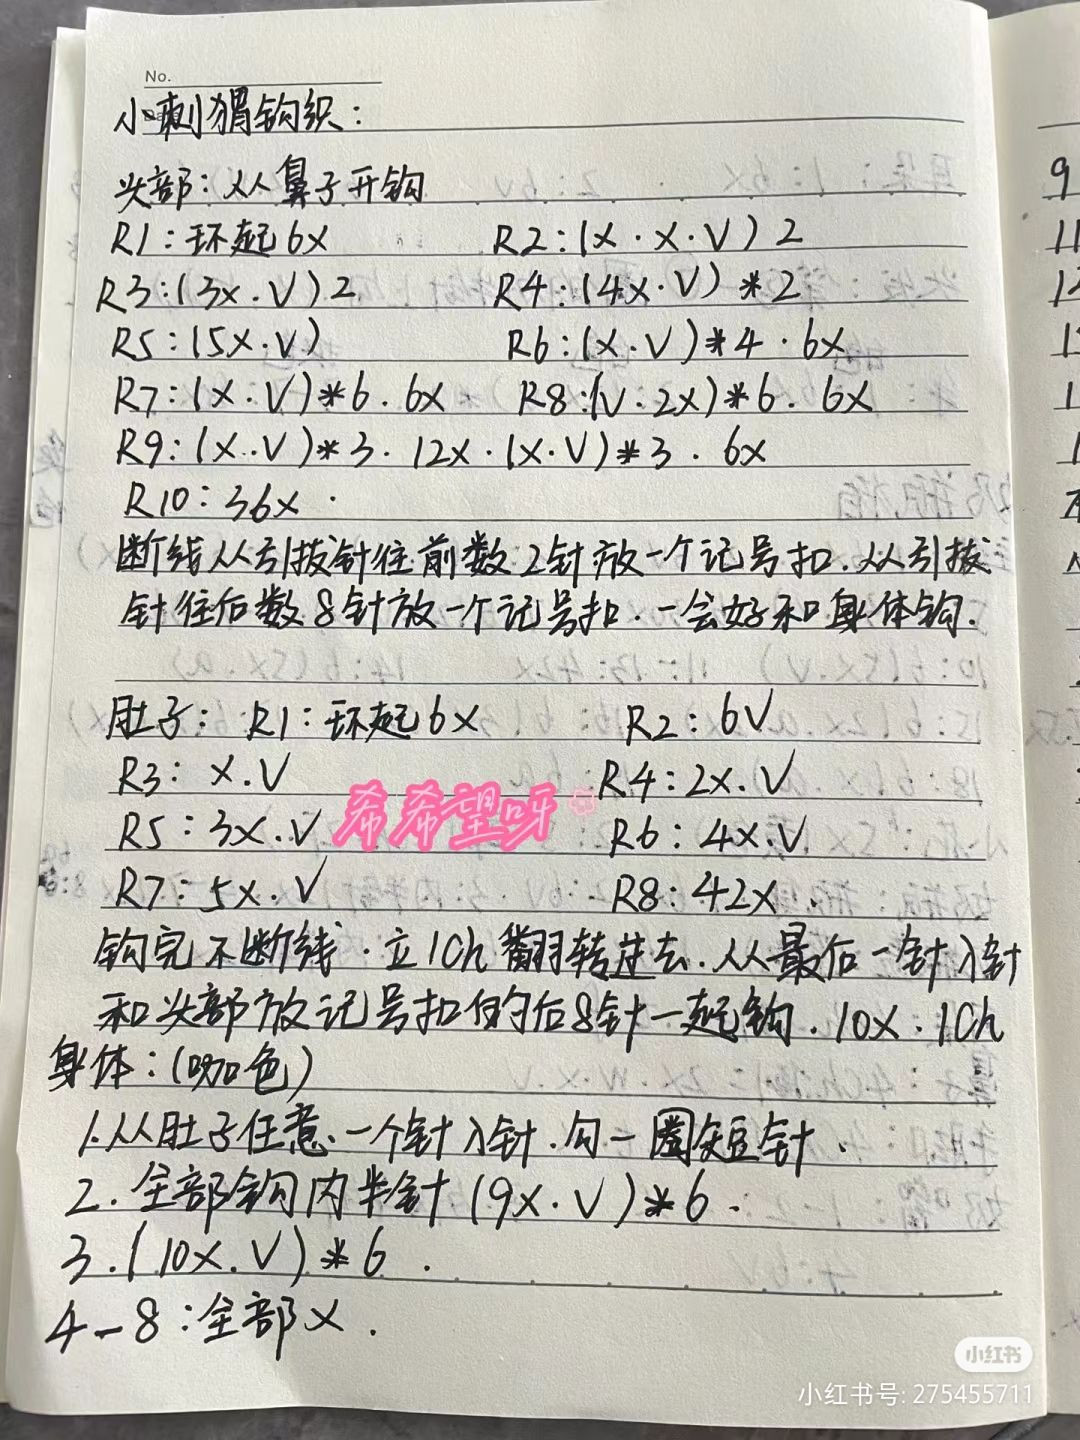 No.
小刺猬钩织：
头部：从鼻子开钩
R1：环起6X  R2：(X·X·V) 2
R3：(3X·V) 2  R4：(4X·V) *2
R5：(5X·V)  R6：(X·V)*4·6X
R7：(X·V)*6·6X  R8：(V·2X)*6·6X
R9：(X·V)*3·12X·(X·V)*3·6X
R10：36X·
断线从引拔针往前数2针放一个记号扣．从引拔
针往后数8针放一个记号扣．一会好和身体钩．
肚子：R1：环起6X  R2：6V
R3：X·V  R4：2X·V
希希望呀
R5：3X·V  R6：4X·V
R7：5X·V  R8：42X
钩完不断线·立1Ch翻转过去．从最后一针入针
和头部放记号扣的后8针一起钩．10X·1Ch
身体：(咖色)
1.从肚子任意一个针入针．勾一圈短针．
2．全部钩内半针(9X·V)*6．
3.(10X·V)*6．
4-8：全部X．
9
11
小红书
小红书号: 275455711